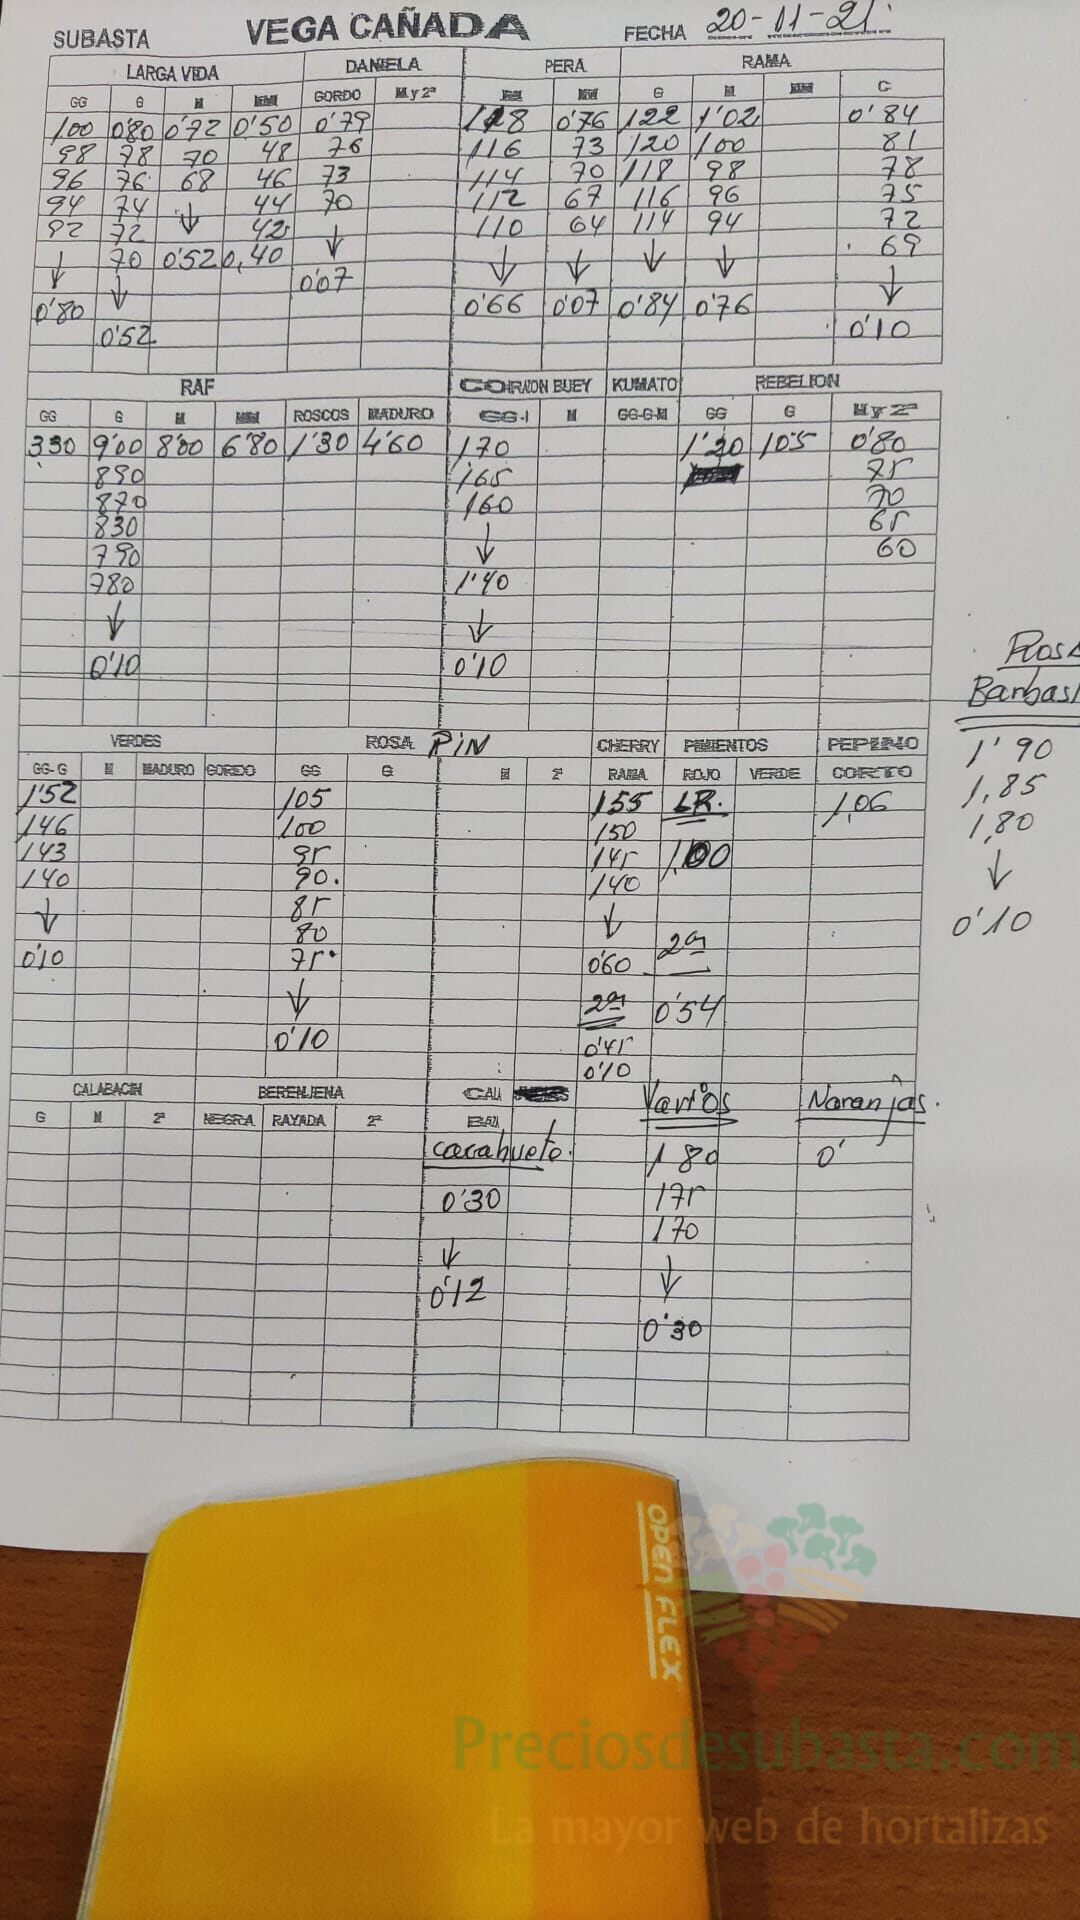 SUBASTA VEGA CAÑADA FECHA 20-11-21
LARGA VIDA DANIELA PERA RAMA
GG G M MM GORDO M y 2ª M MM G M MM C
100 0'80 0'72 0'50 0'79 118 0'76 122 1'02 0'84
98 78 70 48 76 116 73 120 100 81
96 76 68 46 73 114 70 118 98 78
94 74 ↓ 44 70 112 67 116 96 75
92 72 42 ↓ 110 64 114 94 72
↓ 70 0'52 0,40 ↓ ↓ ↓ ↓ 69
0'80 ↓ 0'07 0'66 0'07 0'84 0'76 ↓
0'52 0'10
RAF CORAZON BUEY KUMATO REBELION
GG G M MM ROSCOS MADURO GG-1 M GG-G-M GG G M y 2ª
330 9'00 8'00 6'80 1'30 4'60 170 1'20 105 0'80
890 165 75
870 160 70
830 ↓ 65
790 60
780 1'40
↓ ↓
0'10 0'10
Barbas
1'90
1,85
1,80
↓
0'10
VERDES ROSA PIN CHERRY PIMIENTOS PEPINO
GG-G M MADURO GORDO GG G M 2ª RAMA ROJO VERDE CORTO
1'52 105 155 LR. 1,06
146 100 150
143 95 145 1,00
140 90. 140
↓ 85 ↓
80 2ª
0'10 75. 0'60
↓ 2ª 0'54
0'10 0'45
0'10
CALABACIN BERENJENA CALI Varios Naranjas.
G M 2ª NEGRA RAYADA 2ª BAU
cacahuete. 180 0'
0'30 175
170
↓ ↓
0'12 0'30
OPEN FLEX
Preciosdesubasta.com
La mayor web de hortalizas